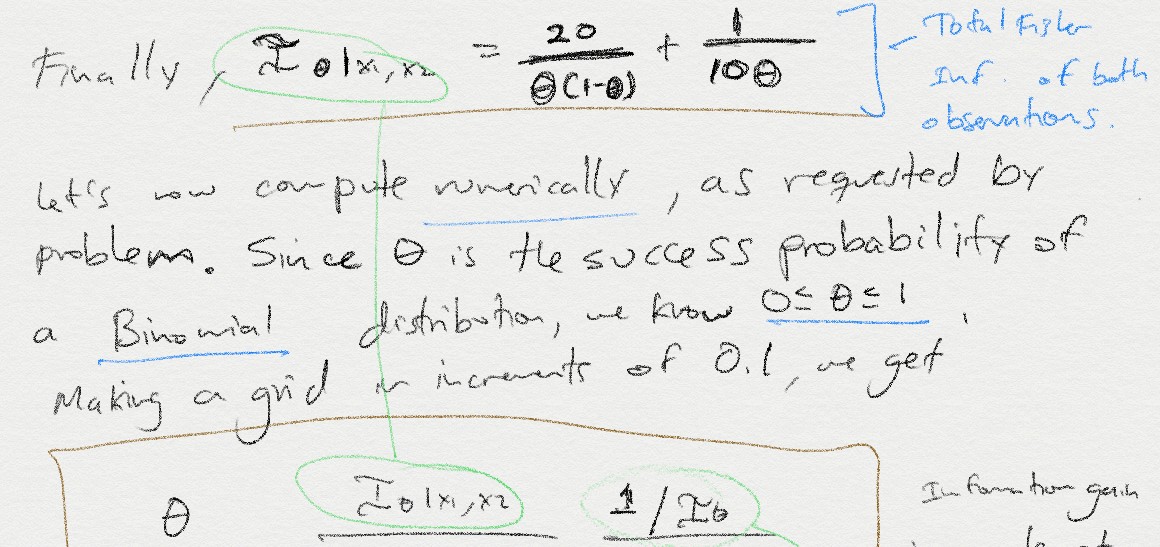 Finally, I θ|x1,x2 = 20/θ(1-θ) + 1/10θ
Total Fisher
Inf. of both
observations.
Let's now compute numerically, as requested by
problem. Since θ is the success probability of
a Binomial distribution, we know 0≤ θ ≤ 1.
Making a grid in increments of 0.1, we get
θ I θ|x1,x2 1/Iθ
Information gain